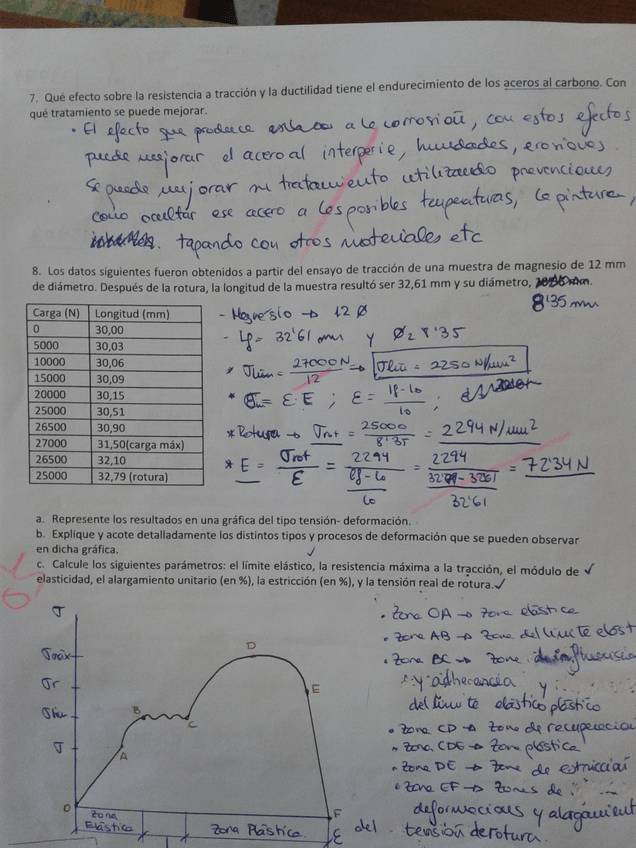 7. Qué efecto sobre la resistencia a tracción y la ductilidad tiene el endurecimiento de los aceros al carbono. Con
qué tratamiento se puede mejorar.
• El efecto que produce a la corrosión, con estos efectos
puede mejorar el acero al interperie, humedades, erosivos.
Se puede mejorar su tratamiento utilizando prevenciones
como ocultar ese acero a los posibles temperaturas, la pintura,
tapando con otros materiales etc
8. Los datos siguientes fueron obtenidos a partir del ensayo de tracción de una muestra de magnesio de 12 mm
de diámetro. Después de la rotura, la longitud de la muestra resultó ser 32,61 mm y su diámetro,
8'35 mm
Carga (N) Longitud (mm)
0 30,00
5000 30,03
10000 30,06
15000 30,09
20000 30,15
25000 30,51
26500 30,90
27000 31,50(carga máx)
26500 32,10
25000 32,79 (rotura)
- Magnesio → 12 Ø
- Lf = 32'61 mm y Ø2 8'35
* σlim = 27000 N / 12 → σlim = 2250 N/mm²
* σ = ε · E ; ε = lf - lo / lo ;
* Rotura → σrot = 25000 / 8'35 = 2294 N/mm²
* E = σrot / ε = 2294 / lf - lo / lo = 2294 / 32'79 - 32'61 / 32'61 = 72'34 N
a. Represente los resultados en una gráfica del tipo tensión- deformación.
b. Explique y acote detalladamente los distintos tipos y procesos de deformación que se pueden observar
en dicha gráfica.
c. Calcule los siguientes parámetros: el límite elástico, la resistencia máxima a la tracción, el módulo de
elasticidad, el alargamiento unitario (en %), la estricción (en %), y la tensión real de rotura.
σ
σmáx
σr
σlim
σ
O
A
B
C
D
E
F
ε
Zona
Elástica
Zona Plástica
• Zona OA → Zona elástica
• Zona AB → Zona del límite elást
• Zona BC → Zona
y adherencia y
del límite elástico plástico
• Zona CD → Zona de recuperacion
• Zona CDE → Zona plástica
• Zona DE → Zona de estricción
• Zona EF → Zonas de
deformaciones y alargamient
del tensión de rotura.